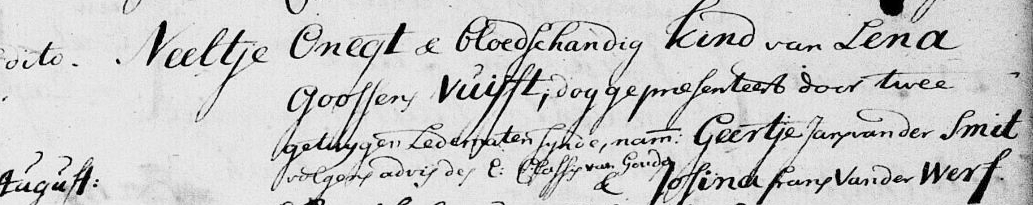 dito. Neeltje Oneqt & bloedschandig kind van Lena
Goossens Vuijst; dog gepresenteert door twee
getuygen Ledematen synde, nam: Geertje Jans vander Smit
volgens advis des E: Classis van Gouda
August: & Josina frans Vander Werf.